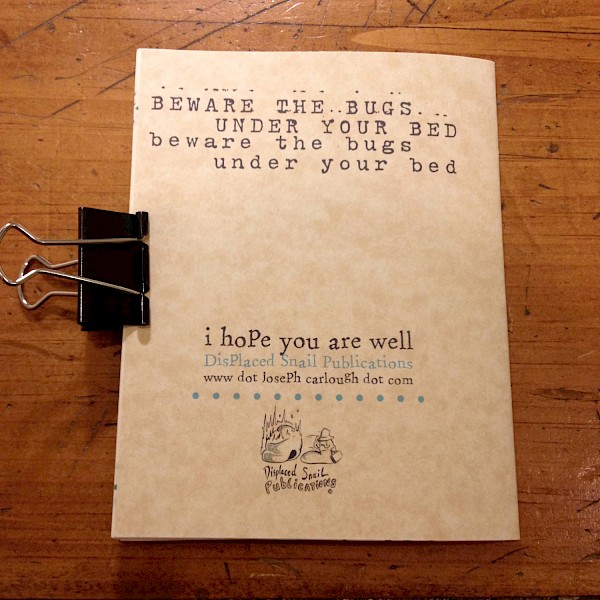 BEWARE THE BUGS
UNDER YOUR BED
beware the bugs
under your bed
i hoPe you are well
DisPlaced Snail Publications
www dot JosePh carlough dot com
Displaced Snail
Publications